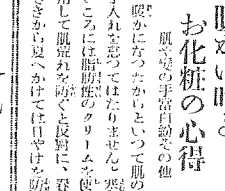 お化粧の心得
肌や髪の手當白粉その他
暖かになつたからといつて肌の
手入れを怠つてはなりません。寒
ころには脂肪性のクリームを使
用して肌荒れを防ぐと反對に、春
さきから夏へかけては日やけを防